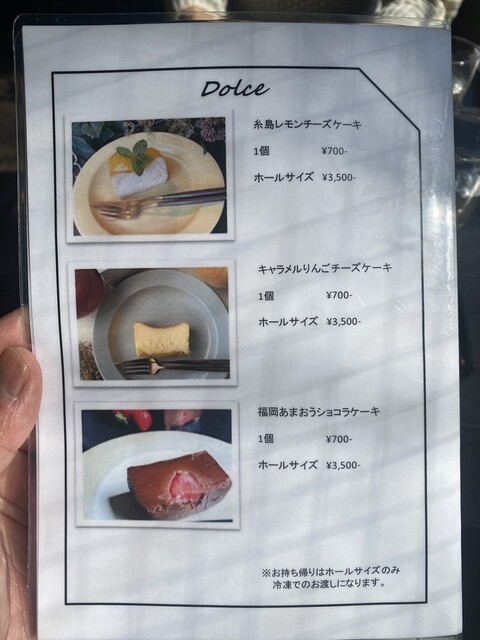 Dolce
糸島レモンチーズケーキ
1個 ¥700-
ホールサイズ ¥3,500-
キャラメルりんごチーズケーキ
1個 ¥700-
ホールサイズ ¥3,500-
福岡あまおうショコラケーキ
1個 ¥700-
ホールサイズ ¥3,500-
※お持ち帰りはホールサイズのみ
冷凍でのお渡しになります。